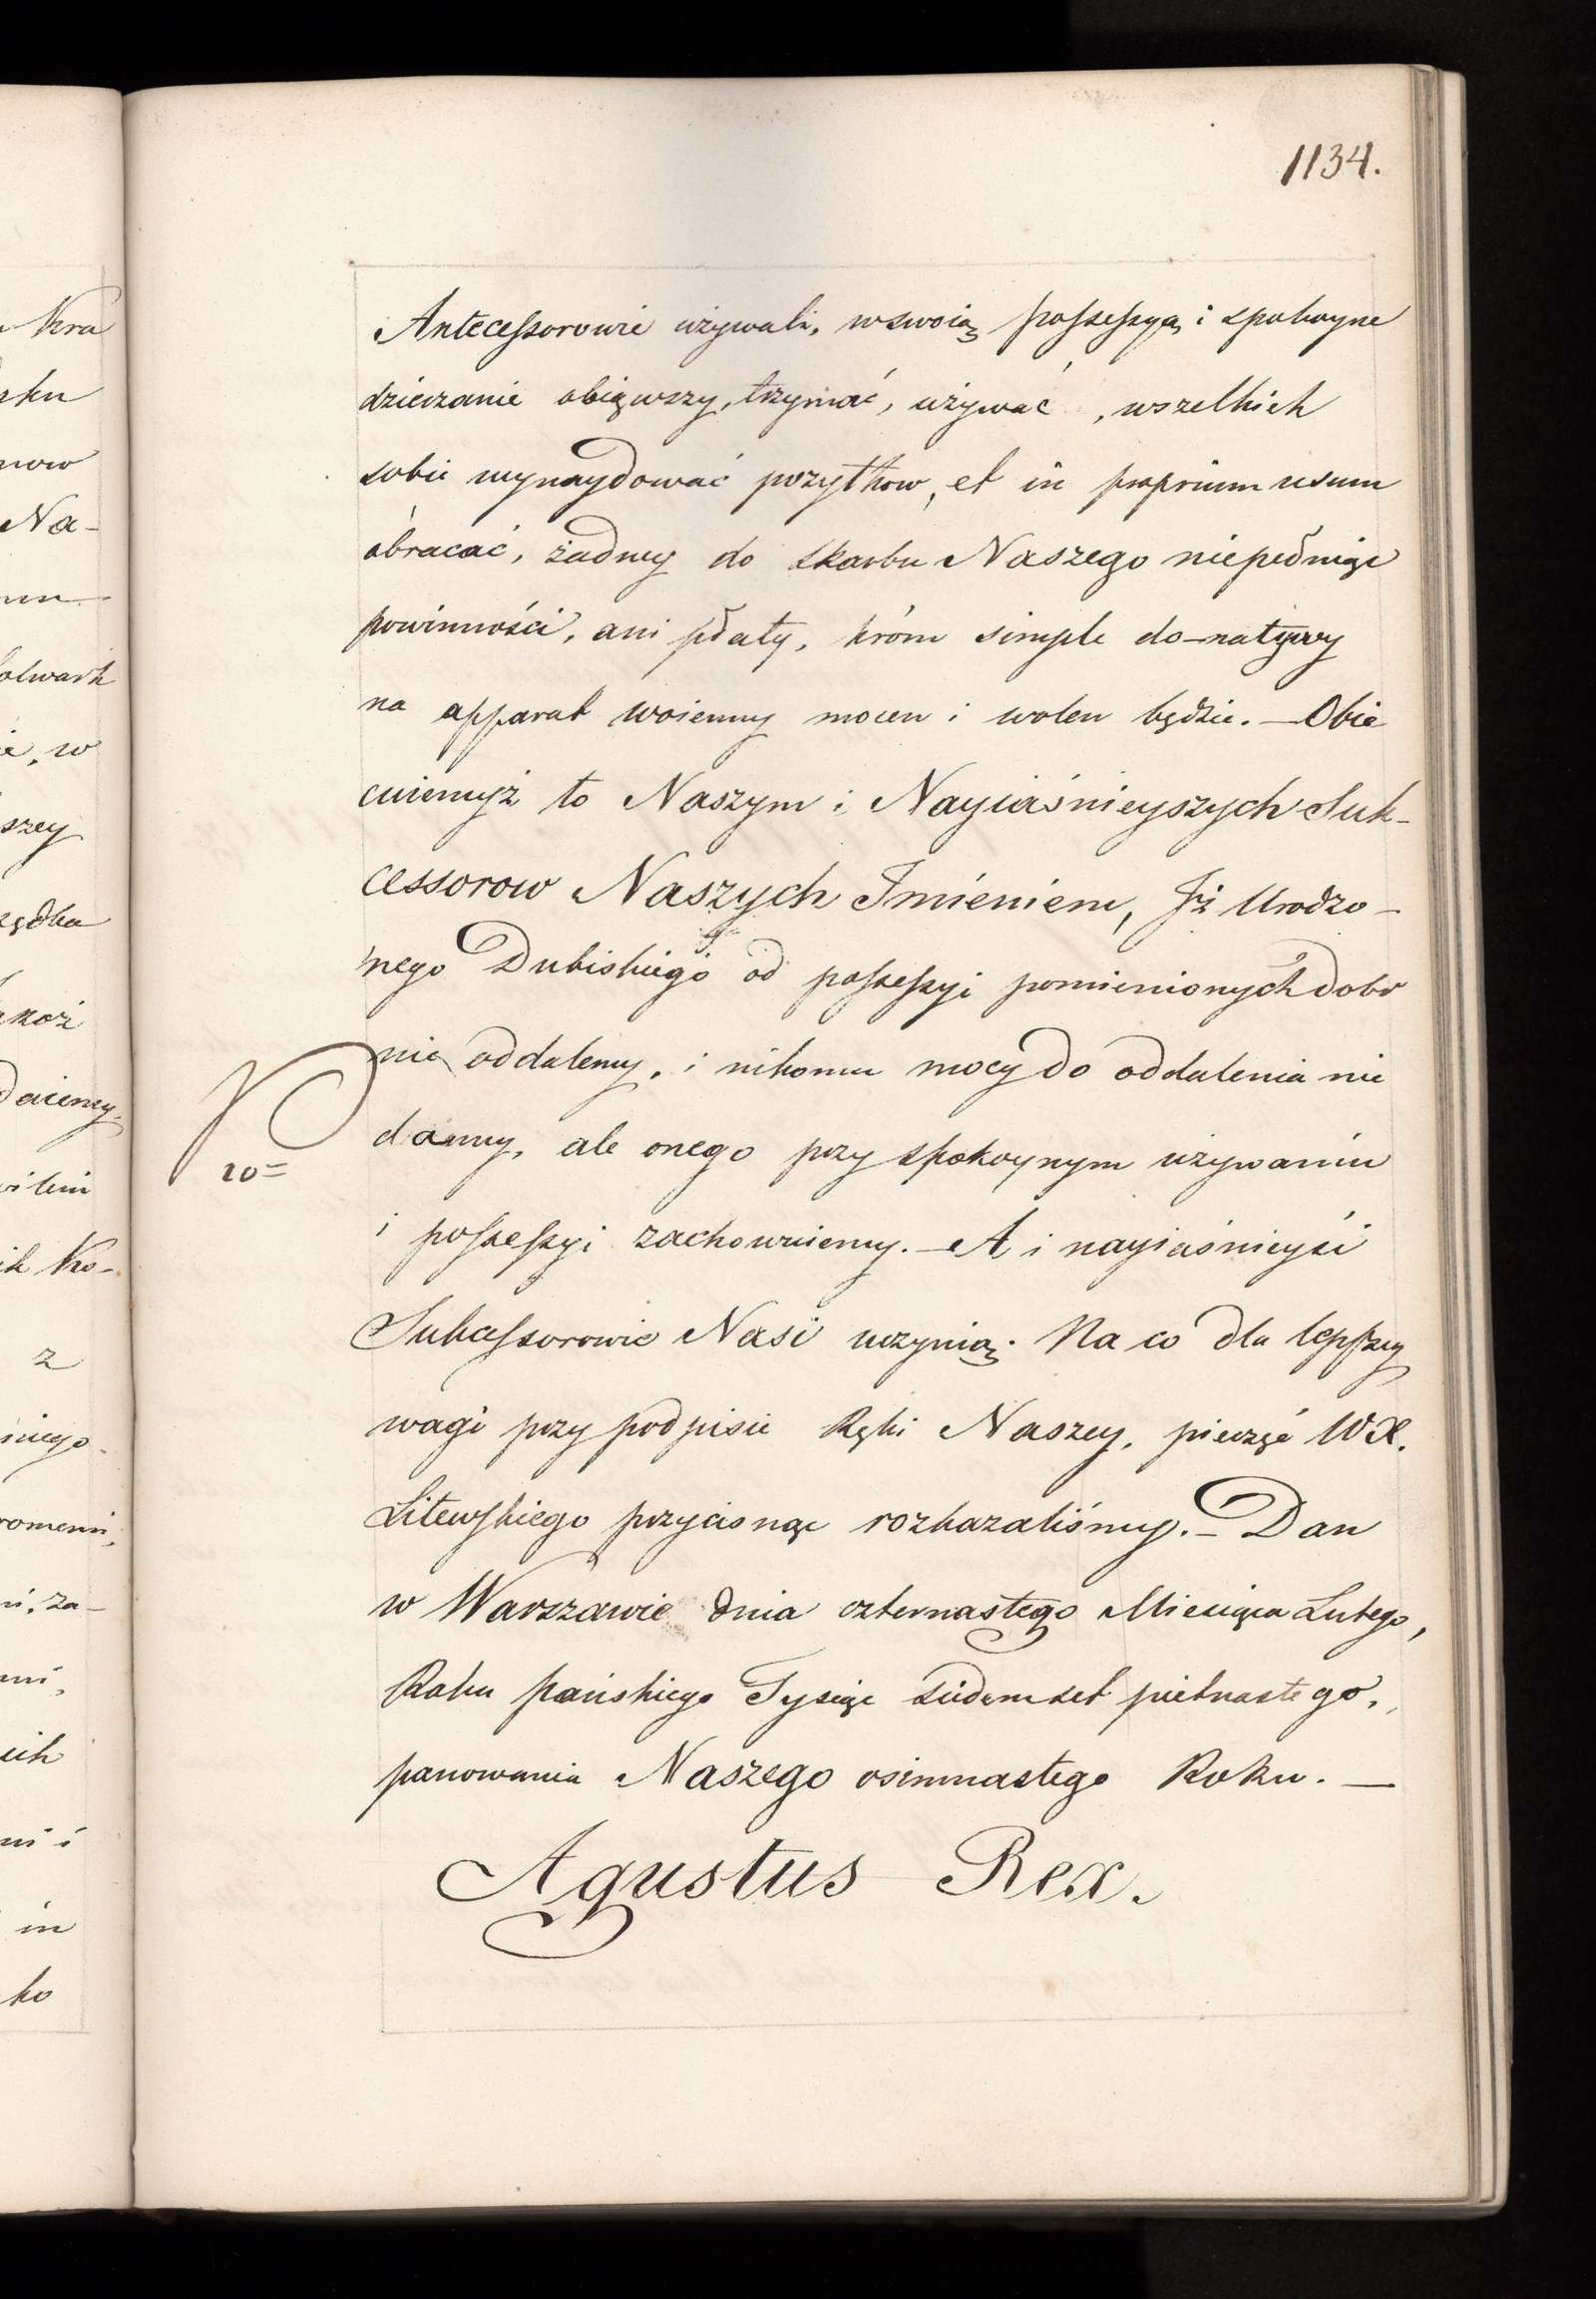 1134.
Antecessorowie używali, w swoią possessyą i spokoyne
dzierzanie obiąwszy, trzymać, używać, wszelkich
sobie wynaydować pożytkow, et in proprium usum
obracać, żadney do skarbu Naszego niepełniąc
powinności, ani płaty, króm simple do-natywy
na apparat woienny mocen i wolen będzie. — Obie
cuiemyż to Naszym i Nayiaśnieyszych Suk-
cessorow Naszych Imieniem, Iż Urodzo-
nego Dubiskiego od possessyi pomienionych dobr
nie oddalemy, i nikomu mocy do oddalenia nie
damy, ale onego przy spokoynym używaniu
i possessyi zachowuiemy. — A i nayiaśnieyśi
Sukcessorowie Nasi uczynią. Na co dla lepszey
wagi przy podpisie Ręki Naszey, pieczęć WX.
Litewskiego przycisnąc rozkazaliśmy. — Dan
w Warszawie dnia czternastego Miesiąca Lutego,
Roku pańskiego Tysiąc siedemset pietnastego,
panowania Naszego osimnastego Roku. —
Agustus Rex.
10=
Kra
sku
now
Na-
olwark
ie, w
szey
ządka
daiemy,
ich Ko-
z
niego
ni, za-
ich
in
ko